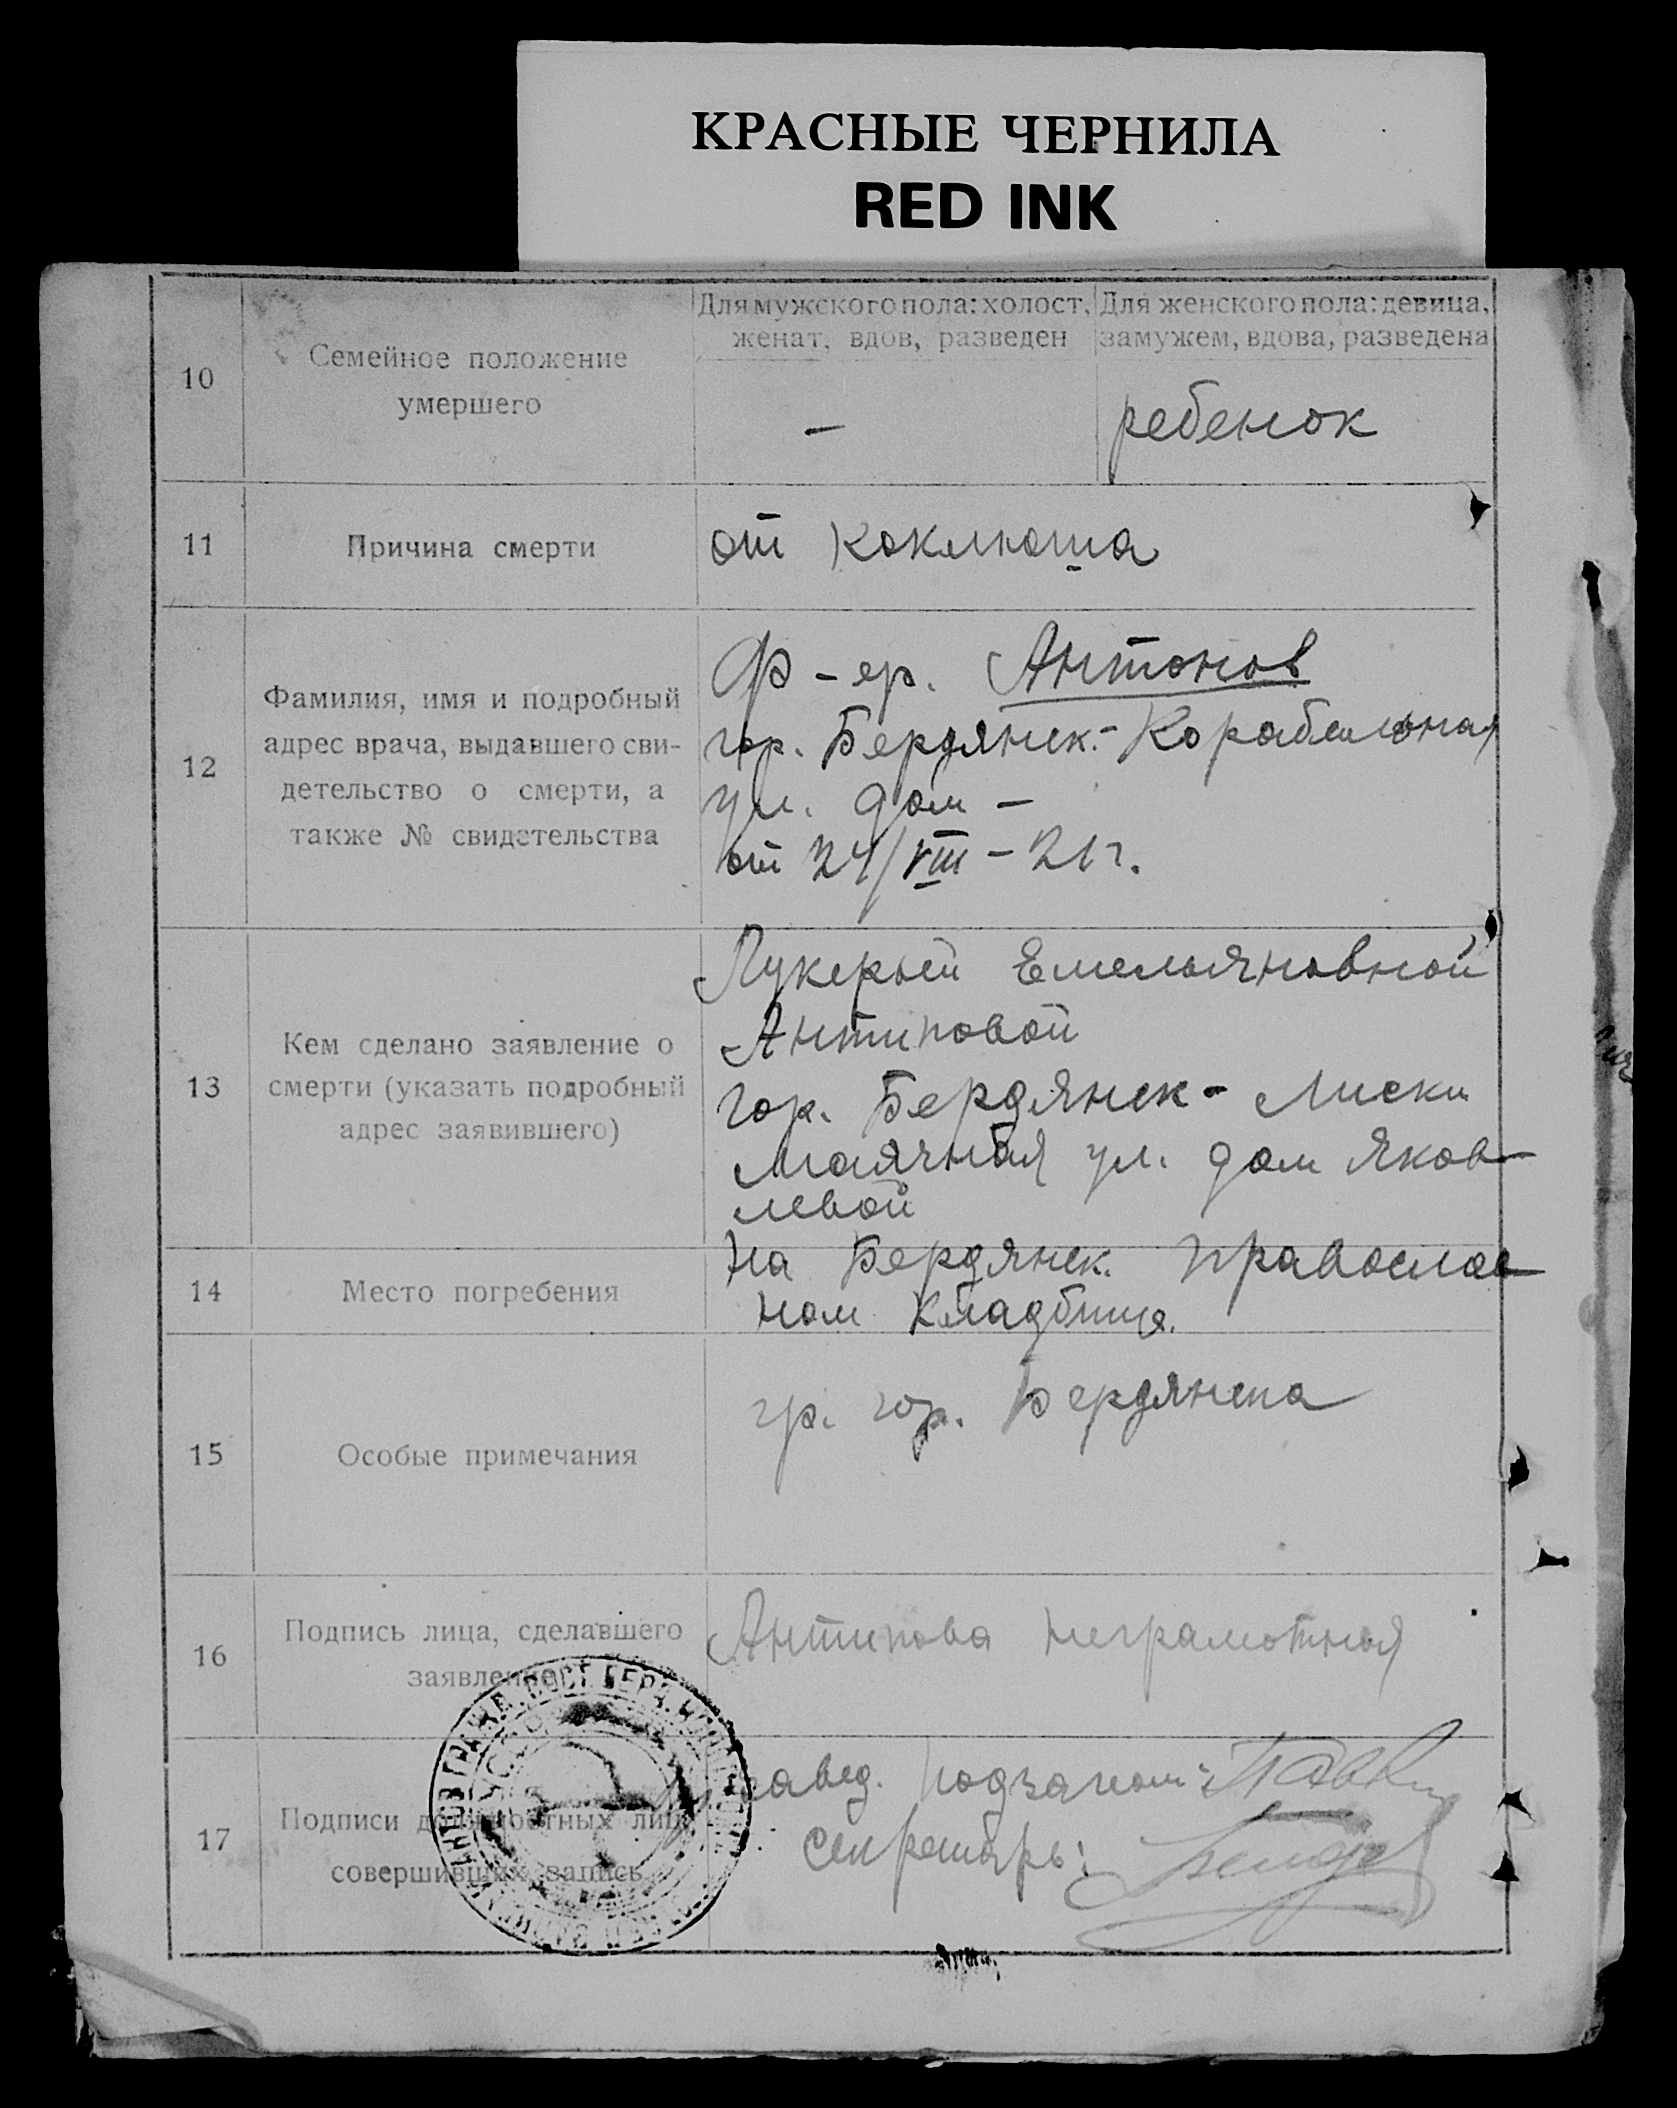 КРАСНЫЕ ЧЕРНИЛА
RED INK
10
Семейное положение
умершего
Для мужского пола: холост,
женат, вдов, разведен
–
Для женского пола: девица,
замужем, вдова, разведена
ребенок
11
Причина смерти
от коклюша
12
Фамилия, имя и подробный
адрес врача, выдавшего сви-
детельство о смерти, а
также № свидетельства
Ф-ер. Антонов
гор. Бердянск.- Корабельная
ул. дом –
от 24/VIII – 21 г.
13
Кем сделано заявление о
смерти (указать подробный
адрес заявившего)
Лукерьей Емельяновной
Антиповой
гор. Бердянск - Лиски
Маячная ул. дом Яков-
левой
14
Место погребения
на Бердянск. православ-
ном кладбище.
15
Особые примечания
гр. гор. Бердянска
16
Подпись лица, сделавшего
заявление
Антипова неграмотная
17
Подписи должностных лиц,
совершивших запись
завед. подзагсом:
секретарь: